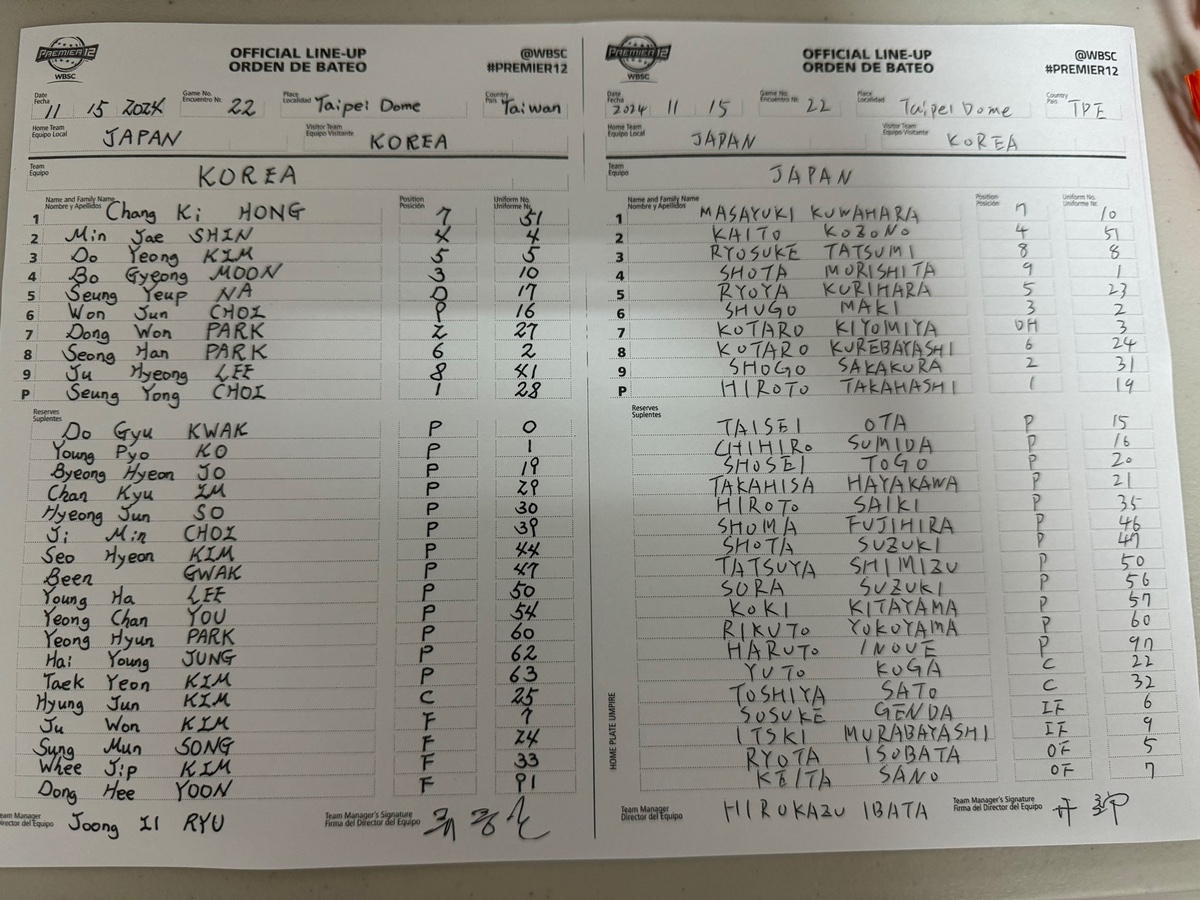 PREMIER 12
WBSC
OFFICIAL LINE-UP
ORDEN DE BATEO
@WBSC
#PREMIER12
Date
Fecha
11 15 2024
Game No.
Encuentro Nr.
22
Place
Localidad
Taipei Dome
Country
País
Taiwan
Home Team
Equipo Local
JAPAN
Visitor Team
Equipo Visitante
KOREA
Team
Equipo
KOREA
Name and Family Name
Nombre y Apellidos
Position
Posición
Uniform No.
Uniforme Nr.
1 Chang Ki HONG 7 51
2 Min Jae SHIN 4 4
3 Do Yeong KIM 5 5
4 Bo Gyeong MOON 3 10
5 Seung Yeup NA D 17
6 Won Jun CHOI 9 16
7 Dong Won PARK 2 27
8 Seong Han PARK 6 2
9 Ju Hyeong LEE 8 41
P Seung Yong CHOI 1 28
Reserves
Suplentes
Do Gyu KWAK P 0
Young Pyo KO P 1
Byeong Hyeon JO P 19
Chan Kyu IM P 29
Hyeong Jun SO P 30
Ji Min CHOI P 39
Seo Hyeon KIM P 44
Been GWAK P 47
Young Ha LEE P 50
Yeong Chan YOU P 54
Yeong Hyun PARK P 60
Hai Young JUNG P 62
Taek Yeon KIM P 63
Hyung Jun KIM C 25
Ju Won KIM F 7
Sung Mun SONG F 24
Whee Jip KIM F 33
Dong Hee YOON F 91
Team Manager
Director del Equipo
Joong Il RYU
Team Manager's Signature
Firma del Director del Equipo
PREMIER 12
WBSC
OFFICIAL LINE-UP
ORDEN DE BATEO
@WBSC
#PREMIER12
Date
Fecha
2024 11 15
Game No.
Encuentro Nr.
22
Place
Localidad
Taipei Dome
Country
País
TPE
Home Team
Equipo Local
JAPAN
Visitor Team
Equipo Visitante
KOREA
Team
Equipo
JAPAN
Name and Family Name
Nombre y Apellidos
Position
Posición
Uniform No.
Uniforme Nr.
1 MASAYUKI KUWAHARA 7 10
2 KAITO KOZONO 4 51
3 RYOSUKE TATSUMI 8 8
4 SHOTA MORISHITA 9 1
5 RYOYA KURIHARA 5 23
6 SHUGO MAKI 3 2
7 KOTARO KIYOMIYA DH 3
8 KOTARO KUREBAYASHI 6 24
9 SHOGO SAKAKURA 2 31
P HIROTO TAKAHASHI 1 19
Reserves
Suplentes
TAISEI OTA P 15
CHIHIRO SUMIDA P 16
SHOSEI TOGO P 20
TAKAHISA HAYAKAWA P 21
HIROTO SAIKI P 35
SHOMA FUJIHIRA P 46
SHOTA SUZUKI P 47
TATSUYA SHIMIZU P 50
SORA SUZUKI P 56
KOKI KITAYAMA P 57
RIKUTO YOKOYAMA P 60
HARUTO INOUE P 97
YUTO KOGA C 22
TOSHIYA SATO C 32
SOSUKE GENDA IF 6
ITSKI MURABAYASHI IF 9
RYOTA ISOBATA OF 5
KEITA SANO OF 7
HOME PLATE UMPIRE
Team Manager
Director del Equipo
HIROKAZU IBATA
Team Manager's Signature
Firma del Director del Equipo